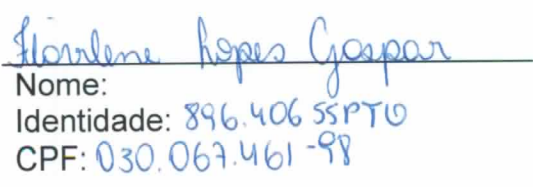 Florilene Lopes Gaspar
Nome:
Identidade: 896.406 SSPTO
CPF: 030.067.461-98